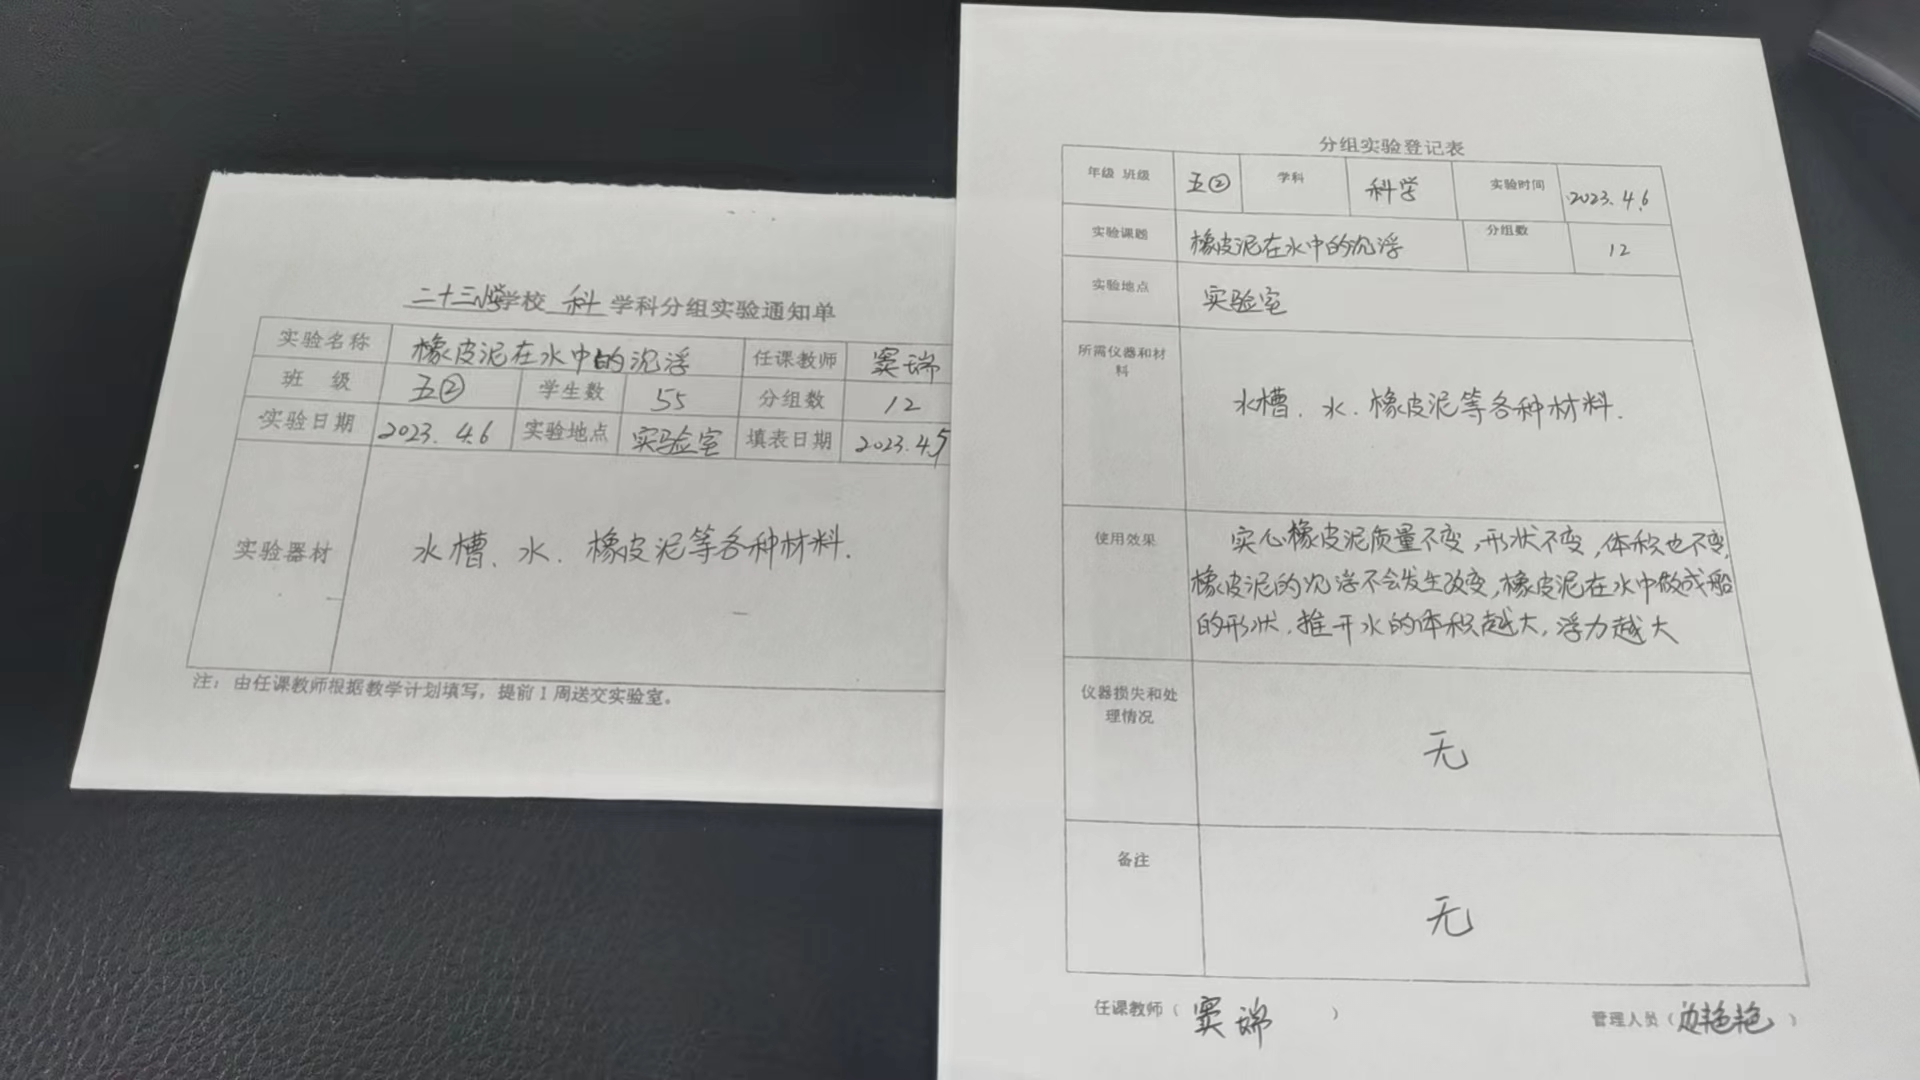 二十三小学学校 科 学科分组实验通知单
实验名称 橡皮泥在水中的沉浮 任课教师 窦瑞
班 级 五② 学生数 55 分组数 12
实验日期 2023.4.6 实验地点 实验室 填表日期 2023.4.5
实验器材 水槽、水、橡皮泥等各种材料.
注：由任课教师根据教学计划填写，提前1周送交实验室。
分组实验登记表
年级 班级 五② 学科 科学 实验时间 2023.4.6
实验课题 橡皮泥在水中的沉浮 分组数 12
实验地点 实验室
所需仪器和材
料
水槽、水、橡皮泥等各种材料.
使用效果 实心橡皮泥质量不变,形状不变,体积也不变,
橡皮泥的沉浮不会发生改变,橡皮泥在水中做成船
的形状,推开水的体积越大,浮力越大
仪器损失和处
理情况
无
备注
无
任课教师（窦瑞） 管理人员（边艳艳）